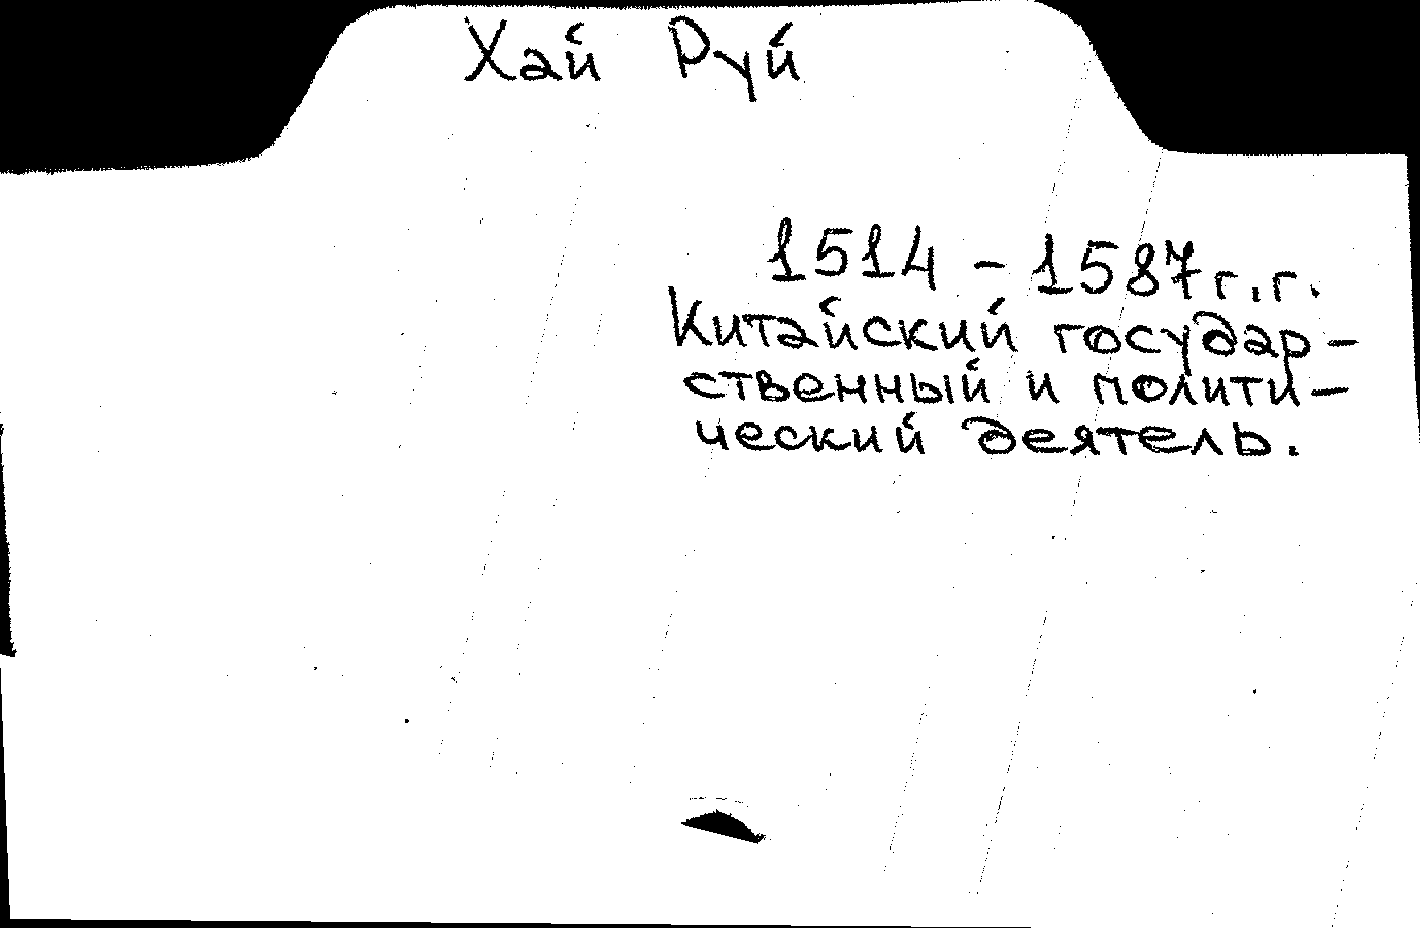 Хай Руй
1514 - 1587 г.г.
Китайский государ-
ственный и полити-
ческий деятель.